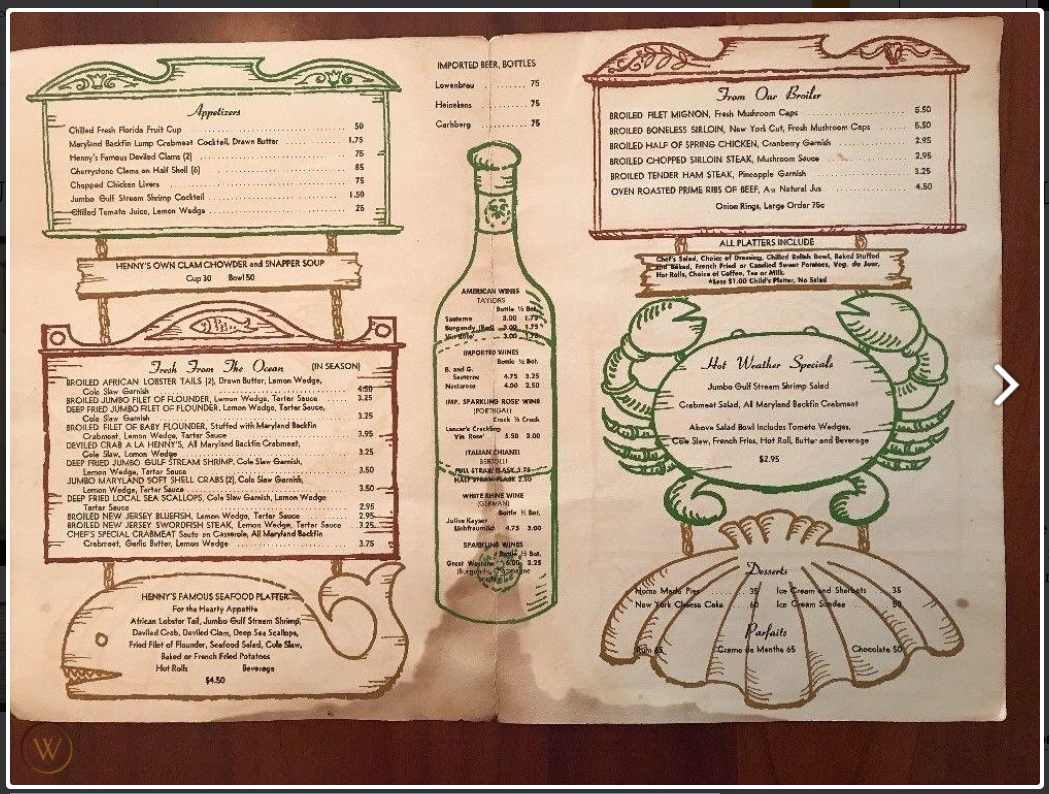 Appetizers
Chilled Fresh Florida Fruit Cup 50
Maryland Backfin Lump Crabmeat Cocktail, Drawn Butter 1.75
Henny's Famous Deviled Clams (2) 75
Cherrystone Clams on Half Shell (6) 85
Chopped Chicken Livers 75
Jumbo Gulf Stream Shrimp Cocktail 1.50
Chilled Tomato Juice, Lemon Wedge 25
HENNY'S OWN CLAM CHOWDER and SNAPPER SOUP
Cup 30 Bowl 50
Fresh From The Ocean (IN SEASON)
BROILED AFRICAN LOBSTER TAILS (2), Drawn Butter, Lemon Wedge,
Cole Slaw Garnish 4.50
BROILED JUMBO FILET OF FLOUNDER, Lemon Wedge, Tartar Sauce 3.25
DEEP FRIED JUMBO FILET OF FLOUNDER, Lemon Wedge, Tartar Sauce,
Cole Slaw Garnish 3.25
BROILED FILET OF BABY FLOUNDER, Stuffed with Maryland Backfin
Crabmeat, Lemon Wedge, Tartar Sauce 3.95
DEVILED CRAB A LA HENNY'S, All Maryland Backfin Crabmeat,
Cole Slaw, Lemon Wedge 3.25
DEEP FRIED JUMBO GULF STREAM SHRIMP, Cole Slaw Garnish,
Lemon Wedge, Tartar Sauce 3.50
JUMBO MARYLAND SOFT SHELL CRABS (2), Cole Slaw Garnish,
Lemon Wedge, Tartar Sauce 3.50
DEEP FRIED LOCAL SEA SCALLOPS, Cole Slaw Garnish, Lemon Wedge
Tartar Sauce 2.95
BROILED NEW JERSEY BLUEFISH, Lemon Wedge, Tartar Sauce 2.95
BROILED NEW JERSEY SWORDFISH STEAK, Lemon Wedge, Tartar Sauce 3.25
CHEF'S SPECIAL CRABMEAT Saute en Casserole, All Maryland Backfin
Crabmeat, Garlic Butter, Lemon Wedge 3.75
HENNY'S FAMOUS SEAFOOD PLATTER
For the Hearty Appetite
African Lobster Tail, Jumbo Gulf Stream Shrimp,
Deviled Crab, Deviled Clam, Deep Sea Scallops,
Fried Filet of Flounder, Seafood Salad, Cole Slaw,
Baked or French Fried Potatoes
Hot Rolls Beverage
$4.50
IMPORTED BEER, BOTTLES
Lowenbrau 75
Heinekens 75
Carlsberg 75
AMERICAN WINES
TAYLORS
Bottle ½ Bot.
Sauterne 3.00 1.75
Burgundy (Red) 3.00 1.75
Vin Rose' 3.00 1.75
IMPORTED WINES
Bottle ½ Bot.
B. and G.
Sauterne 4.75 3.25
Nectarose 4.00 2.50
IMP. SPARKLING ROSE' WINE
(PORTUGAL)
Crock ½ Crock
Lancer's Crackling
Vin Rose' 5.50 3.00
ITALIAN CHIANTI
BERTOLLI
FULL STRAW FLASK 3.75
HALF STRAW FLASK 2.50
WHITE RHINE WINE
(GERMAN)
Bottle ½ Bot.
Julius Kayser
Liebfraumilch 4.75 3.00
SPARKLING WINES
Bottle ½ Bot.
Great Western 6.00 3.25
From Our Broiler
BROILED FILET MIGNON, Fresh Mushroom Caps 5.50
BROILED BONELESS SIRLOIN, New York Cut, Fresh Mushroom Caps 5.50
BROILED HALF OF SPRING CHICKEN, Cranberry Garnish 2.95
BROILED CHOPPED SIRLOIN STEAK, Mushroom Sauce 2.95
BROILED TENDER HAM STEAK, Pineapple Garnish 3.25
OVEN ROASTED PRIME RIBS OF BEEF, Au Natural Jus 4.50
Onion Rings, Large Order 75c
ALL PLATTERS INCLUDE
Chef's Salad, Choice of Dressing, Chilled Relish Bowl, Baked Stuffed
and Baked, French Fried or Candied Sweet Potatoes, Veg. du Jour,
Hot Rolls, Choice of Coffee, Tea or Milk.
*Less $1.00 Child's Platter, No Salad
Hot Weather Specials
Jumbo Gulf Stream Shrimp Salad
Crabmeat Salad, All Maryland Backfin Crabmeat
Above Salad Bowl Includes Tomato Wedges,
Cole Slaw, French Fries, Hot Roll, Butter and Beverage
$2.95
Desserts
Home Made Pies 35 Ice Cream and Sherbets 35
New York Cheese Cake 60 Ice Cream Sundae 50
Parfaits
Rum 65 Creme de Menthe 65 Chocolate 50
W